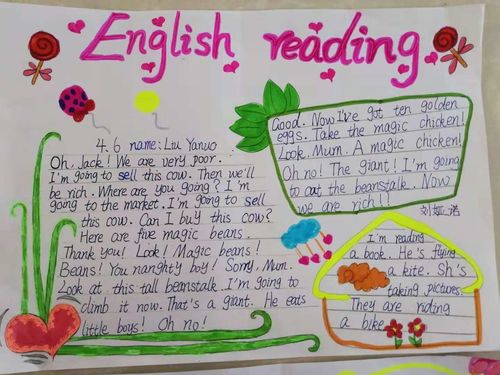 English reading
4.6 name: Liu Yanuo
Oh, Jack! We are very poor.
I'm going to sell this cow. Then we'll
be rich. Where are you going? I'm
going to the market. I'm going to sell
this cow. Can I buy this cow?
Here are five magic beans.
Thank you! Look! Magic beans!
Beans! You nanghty boy! Sorry, Mum.
Look at this tall beanstalk. I'm going to
climb it now. That's a giant. He eats
little boys! Oh no!
Good. Now I've got ten golden
eggs. Take the magic chicken!
Look, Mum. A magic chicken!
Oh no! The giant! I'm going
to cut the beanstalk. Now
we are rich!!
刘娅诺
I'm reading
a book. He's flying
a kite. Sh's
taking pictures.
They are riding
a bike.